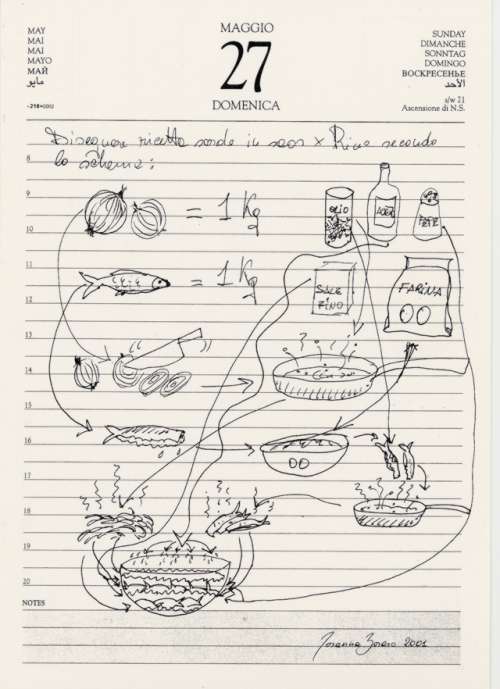 MAY
MAI
MAI
MAYO
МАЙ
مايو
MAGGIO
27
DOMENICA
SUNDAY
DIMANCHE
SONNTAG
DOMINGO
ВОСКРЕСЕНЬЕ
الأحد
s/w 21
Ascensione di N.S.
Disegnare ricetta sarde in saor x secondo
lo schema:
8
9
= 1 Kg
OLIO
ACETO
PEPE
10
11
= 1 Kg
SALE
FINO
FARINA
00
12
13
14
15
16
00
17
18
19
20
NOTES
2001